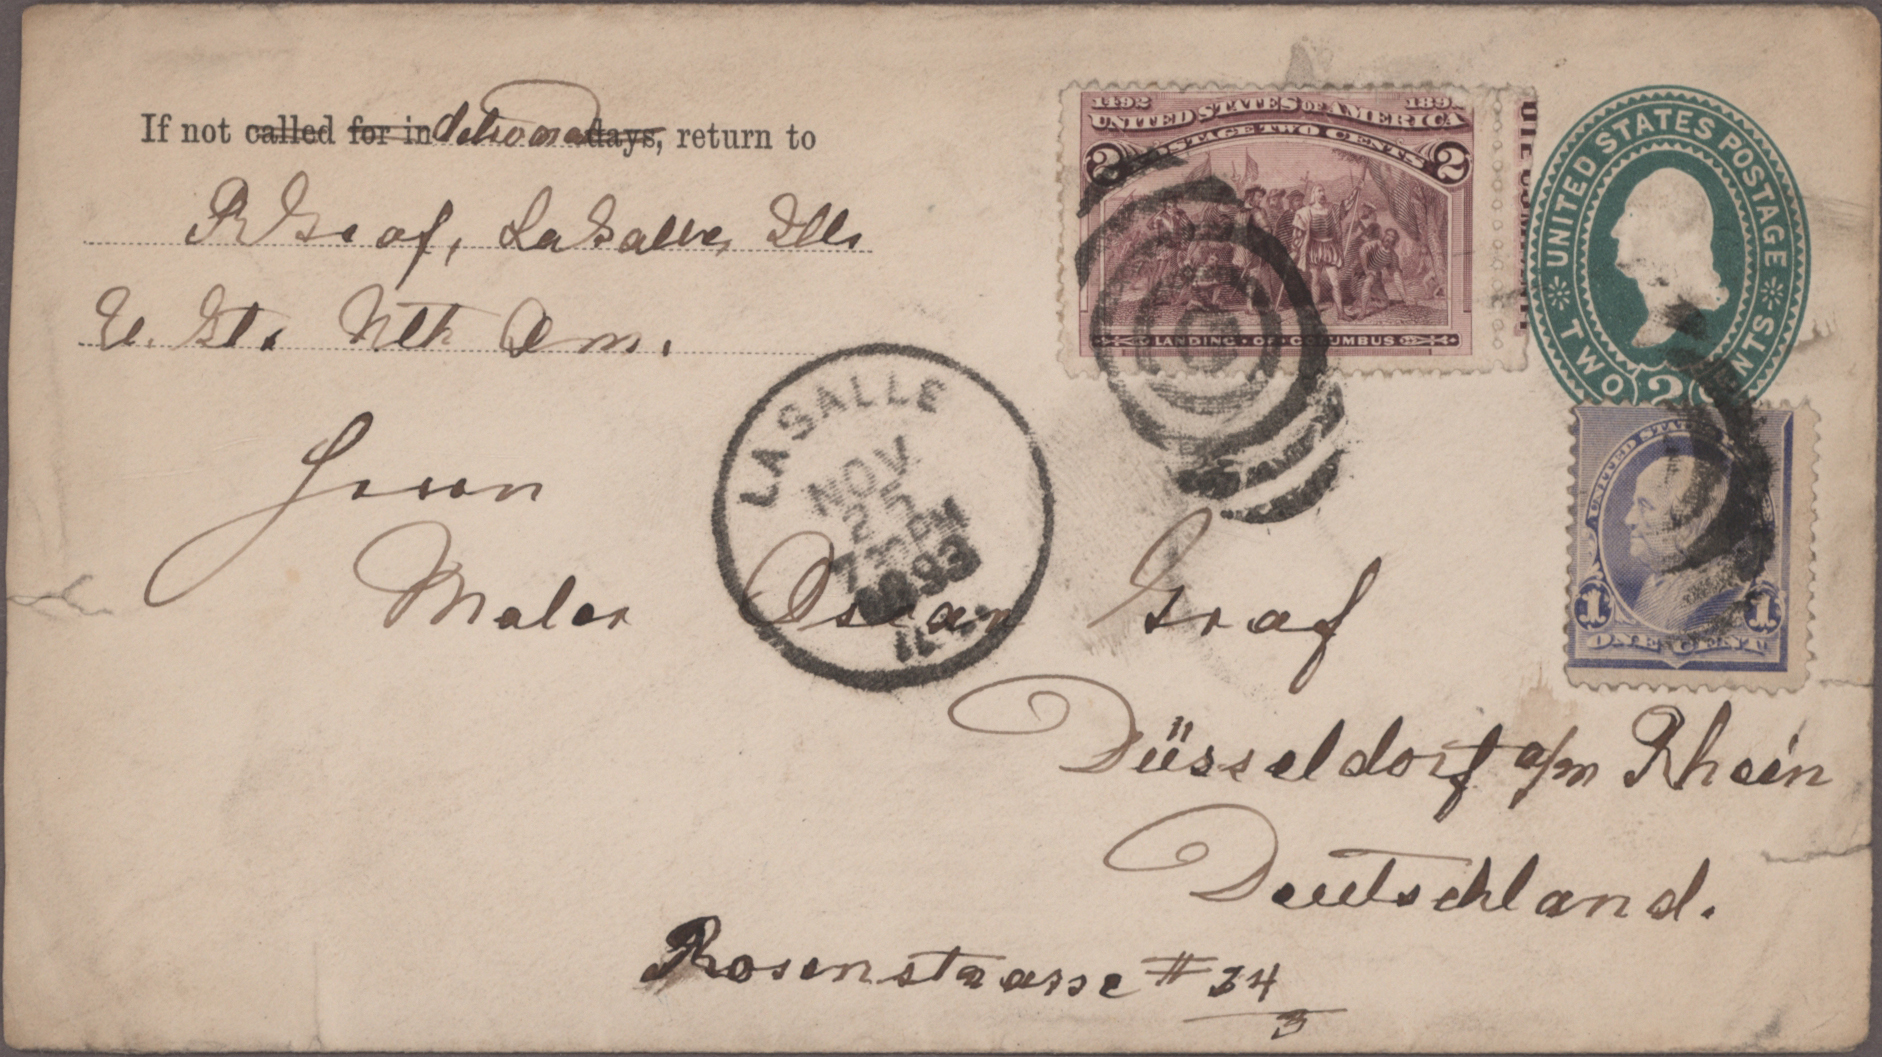 If not called for in days, return to
R Graf, LaSalle, Ills
U. Sts. Nth Am.
1492 189
UNITED STATES OF AMERICA
POSTAGE TWO CENTS
2 2
LANDING · OF · COLUMBUS
UNITED STATES POSTAGE
TWO 2 CENTS
UNITED STATES
1 1
ONE CENT
LASALLE
NOV
25
730PM
1893
ILL.
Herrn
Maler Oscar Graf
Düsseldorf a/m Rhein
Deutschland.
Rosenstrasse # 34
3